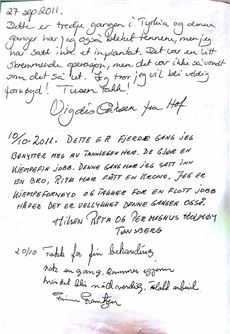 27 sep 2011.
Dette er tredje gangen i Tyrkia og denne
gangen har jeg også bleket tennene, men jeg
har satt inn et implantat. Det var en litt
skremmende operasjon, men det var ikke så vondt
som det så ut. Jeg tror jeg vil bli veldig
fornøyd! Tusen takk!
Vigdis fra Hof
10/10-2011. DETTE ER FJERDE GANG JEG
BENYTTER MEG AV TANNLEGEN HER. DE GJØR EN
KJEMPEFIN JOBB. DENNE GANG HAR JEG SATT INN
EN BRO, RITA HAR FÅTT EN KRONE. JEG ER
KJEMPEFORNØYD OG TAKKER FOR EN FLOTT JOBB
HÅPER DET ER VELLYKKET DENNE GANGEN OGSÅ.
HILSEN RITA OG PER MAGNUS
TØNSBERG
20/10 Takk for fin behandling,
nok en gang. kommer igjen
hvis det blir nødvendig.